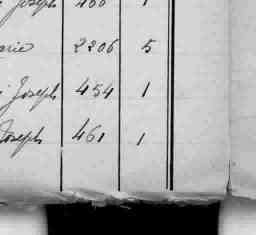 Joseph 460 1
arie 2206 5
Joseph 454 1
Joseph 461 1